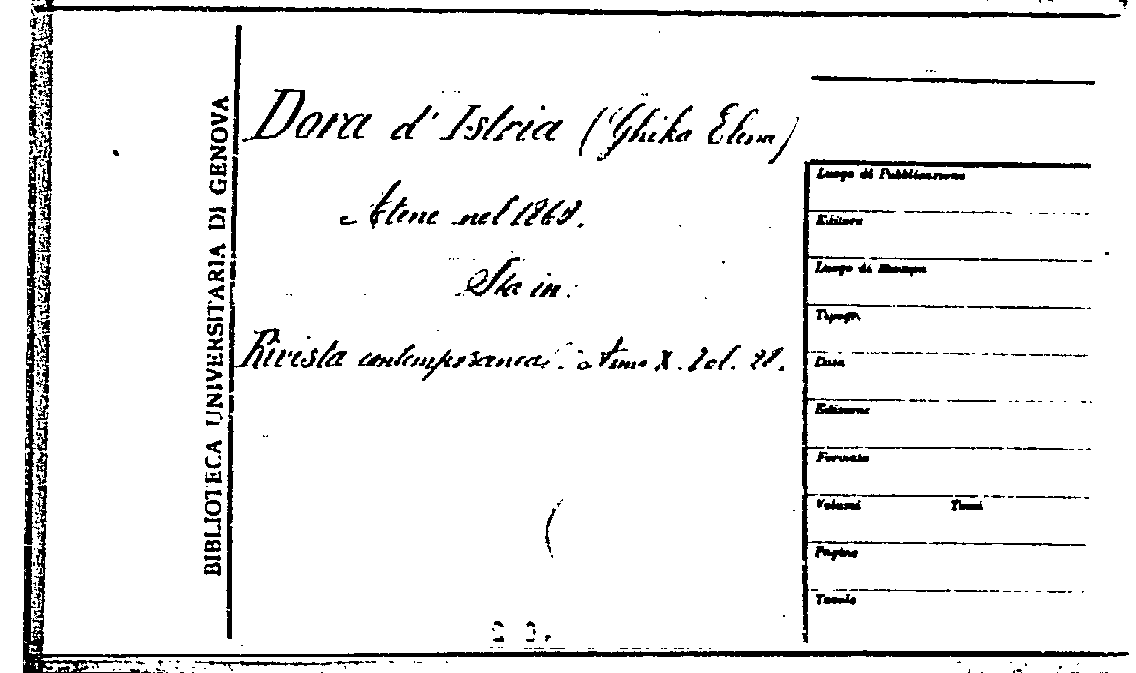 BIBLIOTECA UNIVERSITARIA DI GENOVA
Dora d'Istria (Ghika Elena)
Atene nel
Sta in:
Rivista contemporanea. Anno X. Vol.
Luogo di Pubblicazione
Editore
Luogo di Stampa
Tipogr.
Data
Edizione
Formato
Volumi Tomi
Pagine
Tavole